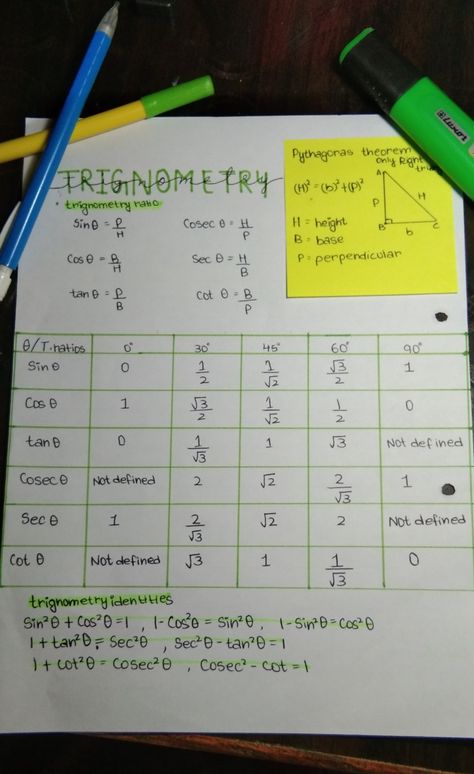 TRIGNOMETRY
trignometry ratio
Sinθ = P/H   Cosec θ = H/P
Cosθ = B/H   Sec θ = H/B
tanθ = P/B   Cot θ = B/P
Pythagoras theorem
only Right
A
(H)² = (b)² + (P)²
P H
B b C
H = height
B = base
P = perpendicular
θ/T.ratios 0° 30° 45° 60° 90°
Sin θ 0 1/2 1/√2 √3/2 1
Cos θ 1 √3/2 1/√2 1/2 0
tan θ 0 1/√3 1 √3 Not defined
Cosec θ Not defined 2 √2 2/√3 1
Sec θ 1 2/√3 √2 2 Not defined
Cot θ Not defined √3 1 1/√3 0
trignometry identities
Sin²θ + Cos²θ = 1 , 1-Cos²θ = Sin²θ , 1-Sin²θ = Cos²θ
1 + tan²θ = Sec²θ , Sec²θ - tan²θ = 1
1 + Cot²θ = Cosec²θ , Cosec² - Cot = 1